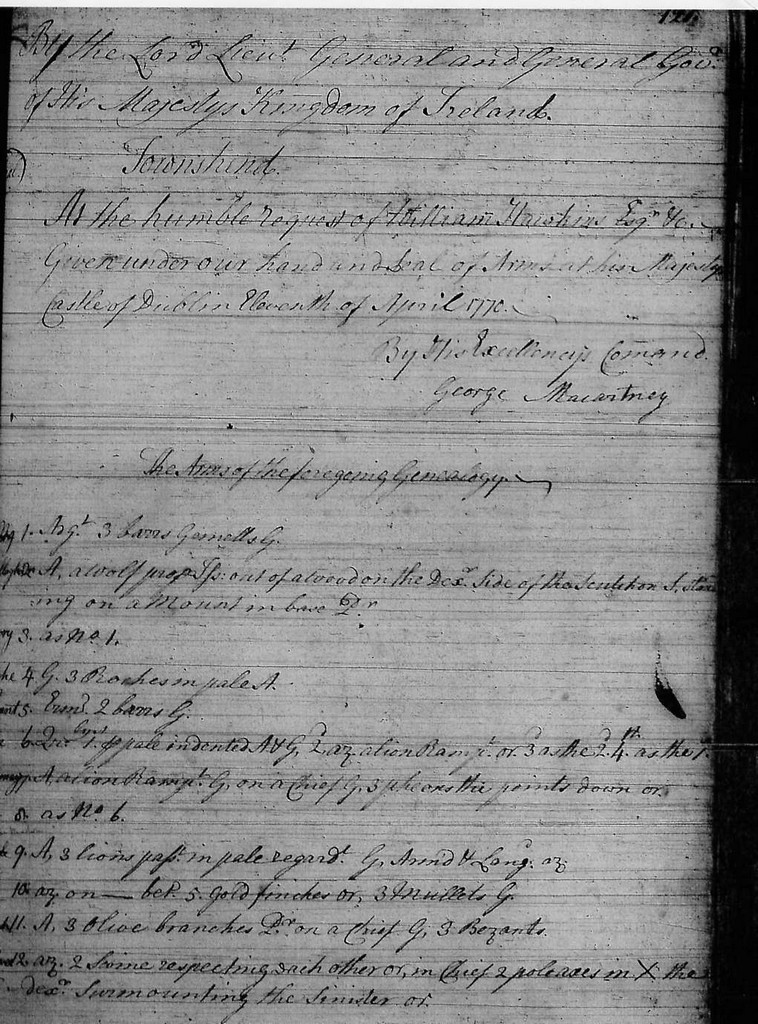 121
By the Lord Lieut. General and General Gov.r
of His Majestys Kingdom of Ireland.
Townshend.
At the humble request of William Hawkins Esqr. &c.
Given under our hand and Seal of Arms at his Majestys
Castle of Dublin Eleventh of April 1770.
By His Excellencys Comand.
George Macartney
The Arms of the foregoing Genealogy
1. Argt. 3 barrs Gemells G.
A, a wolf propr. Iss: out of a wood on the Dexr. Side of the Scutchon S, stand
ing on a Mount in base Pr.
3. as No. 1.
4 G. 3 Roches in pale A.
5. Ermd. 2 barrs G.
6. 1. pale indented A & G, 2d. az. a lion Rampt. or. 3d as the 2d. 4th. as the 1st
A, a lion Rampt. G, on a Chief G, 3 pheons the points down or.
8. as No. 6.
9. A, 3 lions passt. in pale regardt. G, Armd & Langd. az.
10. az. on — bet. 5. Gold finches or, 3 Mullets G.
11. A, 3 Olive branches Pr. on a Chief G, 3 Bezants.
12. az. 2 Swine respecting each other or, in Chief 2 poleaxes in X the
dexr. Surmounting the Sinister or.